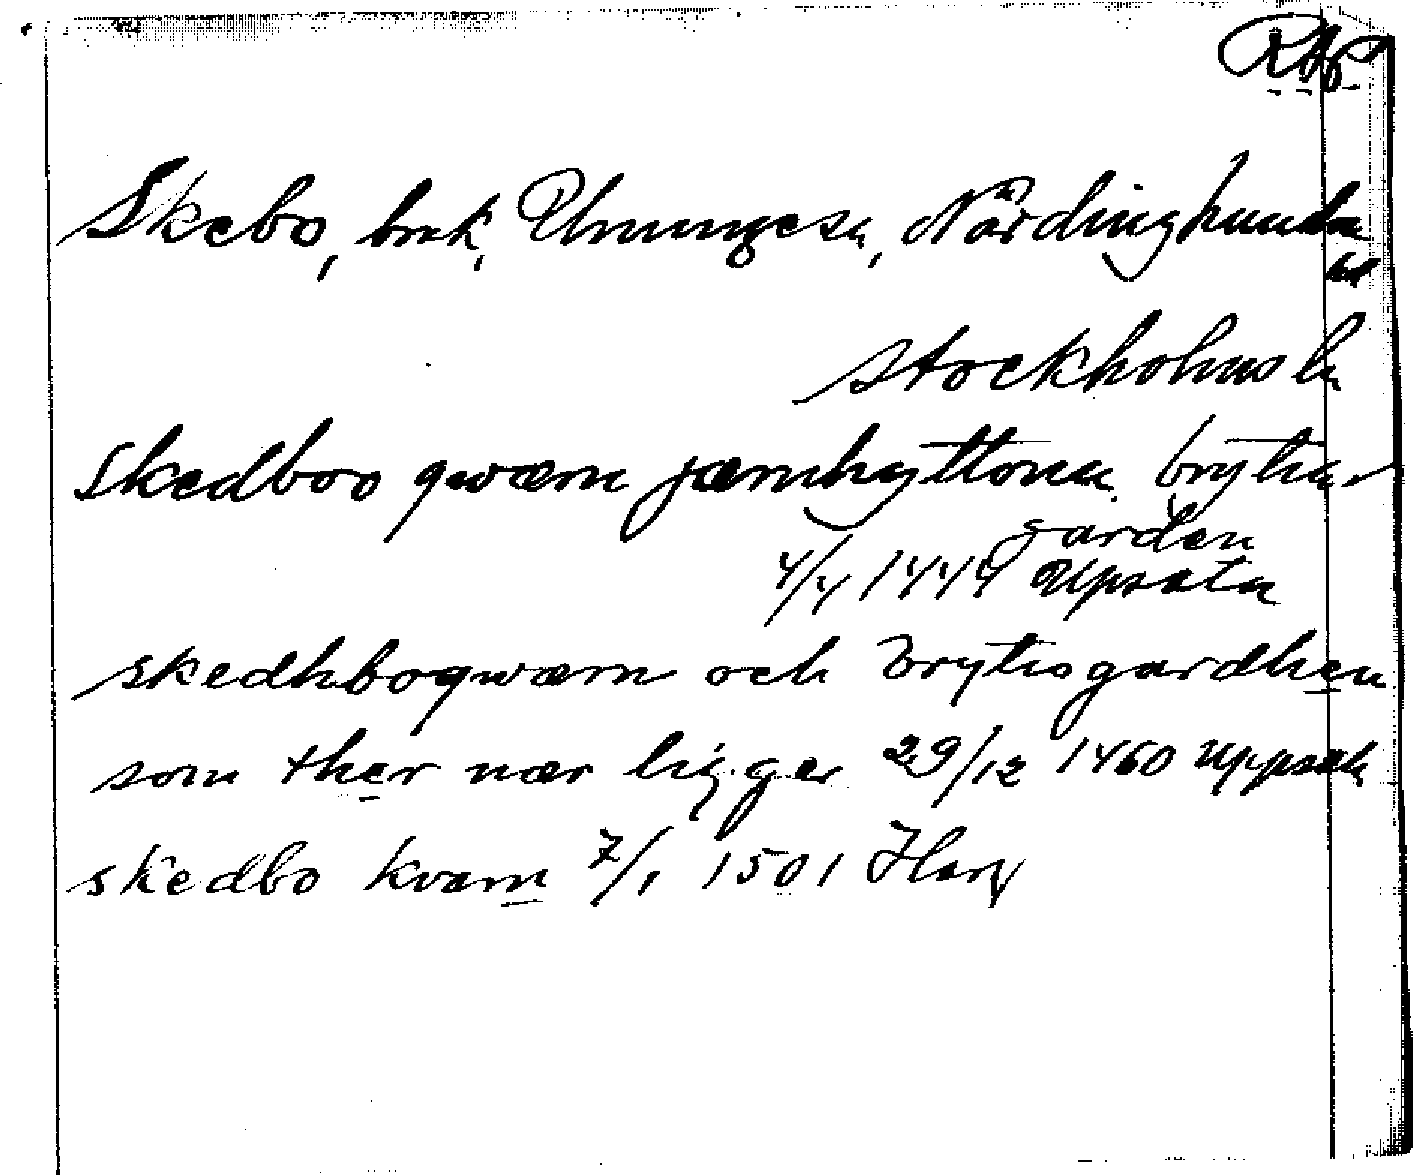 RAp
Skebo, bruk, Ununge sn, Närdinghundra
hd
Stockholms ln
Skedboo qwærn jærnhyttona brytia-
garden
4/4 1444 Upsala
skedhboqwærn och brytiogardhen
som ther nær ligger 29/12 1460 Uppsala
skedbo kvarn 7/1 1501